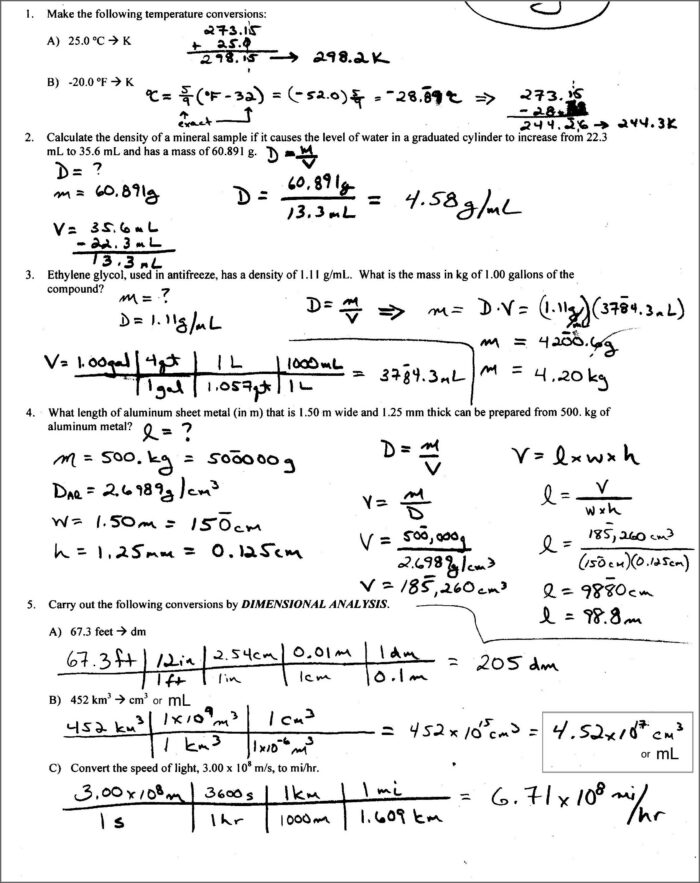 1. Make the following temperature conversions:
A) 25.0 °C → K
273.15
+ 25.0
298.15 → 298.2K
B) -20.0 °F → K
°C = 5/9 (°F - 32) = (-52.0) 5/9 = -28.89 °C ⇒
exact
273.15
244.26 → 244.3K
2. Calculate the density of a mineral sample if it causes the level of water in a graduated cylinder to increase from 22.3
mL to 35.6 mL and has a mass of 60.891 g. D = M/V
D = ?
m = 60.891g
D = 60.891g / 13.3mL = 4.58 g/mL
V = 35.6 mL
- 22.3 mL
13.3 mL
3. Ethylene glycol, used in antifreeze, has a density of 1.11 g/mL. What is the mass in kg of 1.00 gallons of the
compound?
m = ?
D = 1.11g/mL
D = m/V ⇒ m = D·V = (1.11g/mL)(3784.3mL)
m = 4200.6g
m = 4.20 kg
V = 1.00gal | 4qt | 1L | 1000mL
1gal | 1.057qt | 1L
= 3784.3mL
4. What length of aluminum sheet metal (in m) that is 1.50 m wide and 1.25 mm thick can be prepared from 500. kg of
aluminum metal? l = ?
m = 500. kg = 500000g
D = m/V
V = l x w x h
DAl = 2.6989g/cm³
V = m/D
l = V / w x h
w = 1.50m = 150cm
V = 500,000g / 2.6989g/cm³
l = 185,260cm³ / (150cm)(0.125cm)
h = 1.25mm = 0.125cm
V = 185,260cm³
l = 9880cm
l = 98.8m
5. Carry out the following conversions by DIMENSIONAL ANALYSIS.
A) 67.3 feet → dm
67.3ft | 12in | 2.54cm | 0.01m | 1dm
1ft | 1in | 1cm | 0.1m
= 205 dm
B) 452 km³ → cm³ or mL
452 km³ | 1x10⁹ m³ | 1cm³
1 km³ | 1x10⁻⁶ m³
= 452 x 10¹⁵ cm³ = 4.52x10¹⁷ cm³
or mL
C) Convert the speed of light, 3.00 x 10⁸ m/s, to mi/hr.
3.00x10⁸m | 3600s | 1km | 1mi
1s | 1hr | 1000m | 1.609 km
= 6.71 x 10⁸ mi/hr